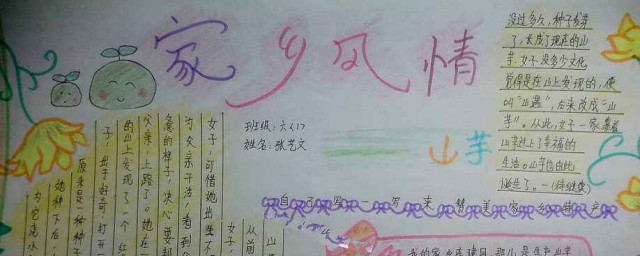 家乡风情
班级：六（1）
姓名：张艺文
山芋
没过多久，种子发芽
了，长成了现在的山
芋。女子没多少文化
觉得是在山上发现的，便
叫“山遇”，后来改成“山
芋”。从此，女子一家靠着
山芋过上了幸福的
生活。山芋也由此
诞生了。
自己写一写来赞美家乡特产
山
从前
女子，
女子，可惜她出生不
为父亲干活，看到父
急的样子，决心要帮
父亲，上路了。她在一
的山上发现了一个红
子，出于好奇，打开一
原来是一种种子
她种下后，
为它浇水
我的家乡在